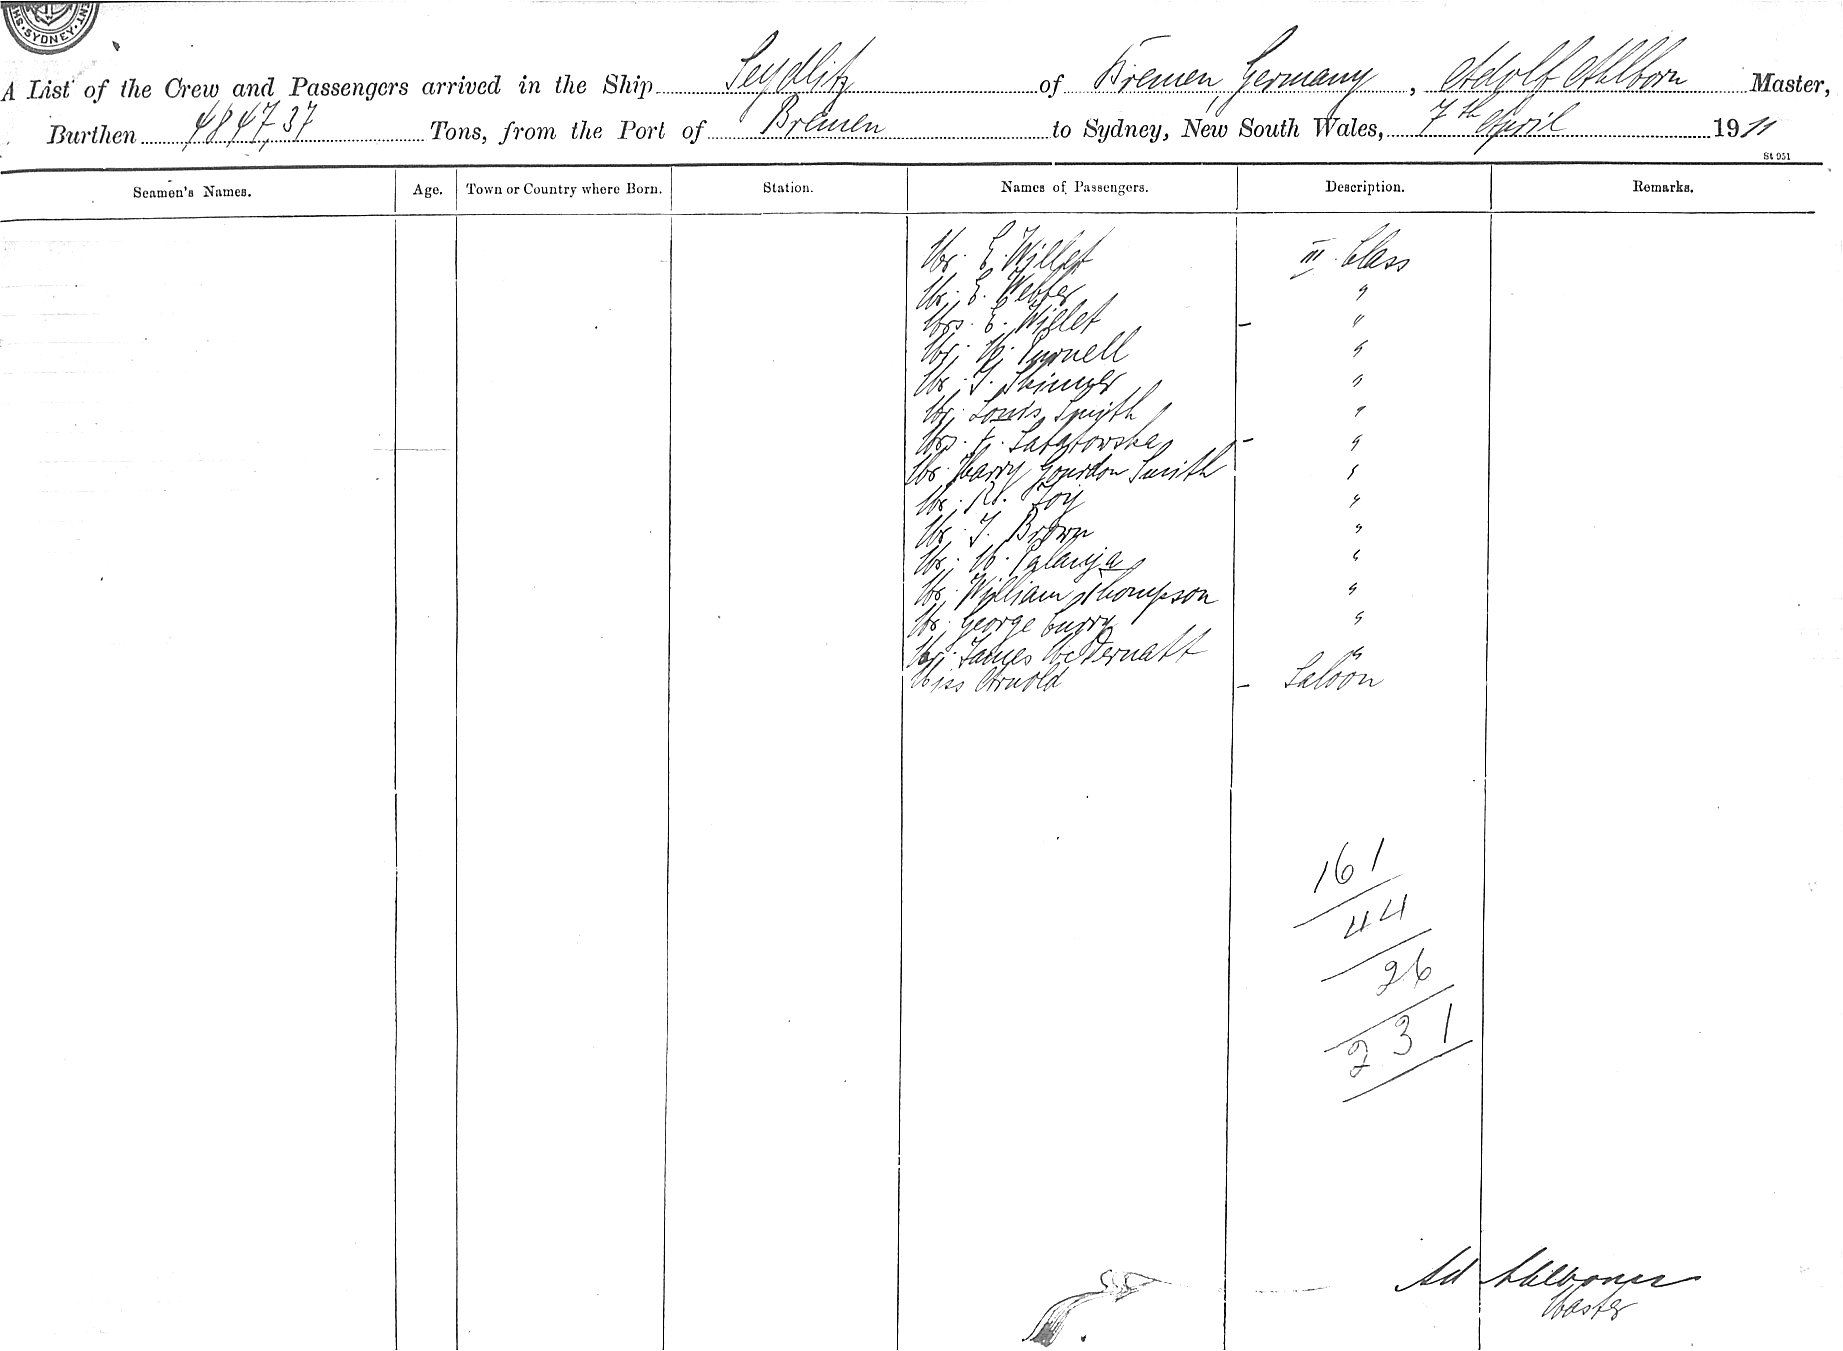 SYDNEY
A List of the Crew and Passengers arrived in the Ship Seydlitz of Bremen, Germany, Adolf Ahlborn Master,
Burthen 4847,37 Tons, from the Port of Bremen to Sydney, New South Wales, 7th April 1911
St 951
Seamen's Names. Age. Town or Country where Born. Station. Names of Passengers. Description. Remarks.
Mr. E. Willet III. Class
Mr. E. Webber "
Mrs. E. Willet - "
Mr. W. Purnell "
Mr. T. "
Mr. Louis Smyth "
Mrs. - "
Mr. Harry Gourdon Smith "
Mr. R. Foy "
Mr. T. Brown "
Mr. "
Mr. William Thompson "
Mr. George Curry "
Mr. James McDernatt "
Miss Arnold - Saloon
161
44
26
231
Ad Ahlborn
Master